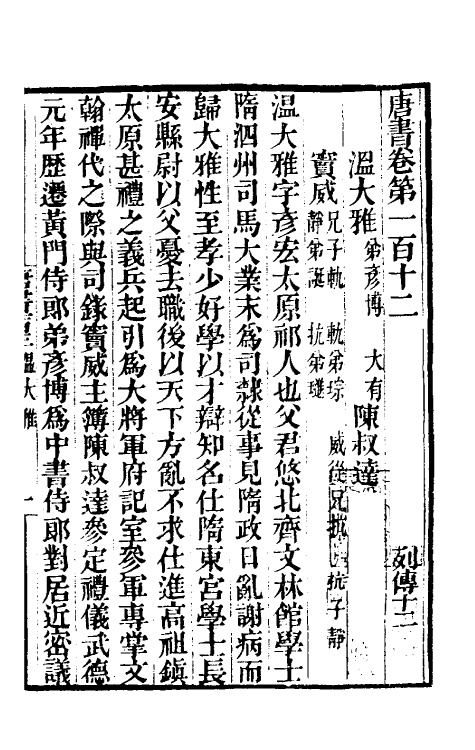 唐書卷第一百十二 列傳十二
溫大雅 弟彥博 大有 陳叔達
竇威 兄子軌 軌弟琮 威從兄抗 抗子靜
靜弟誕 抗弟璡
溫大雅字彥宏太原祁人也父君悠北齊文林館學士
隋泗州司馬大業末爲司隸從事見隋政日亂謝病而
歸大雅性至孝少好學以才辯知名仕隋東宮學士長
安縣尉以父憂去職後以天下方亂不求仕進高祖鎮
太原甚禮之義兵起引爲大將軍府記室參軍專掌文
翰禪代之際與司錄竇威主簿陳叔達參定禮儀武德
元年歷遷黃門侍郎弟彥博爲中書侍郎對居近密議
溫大雅 一